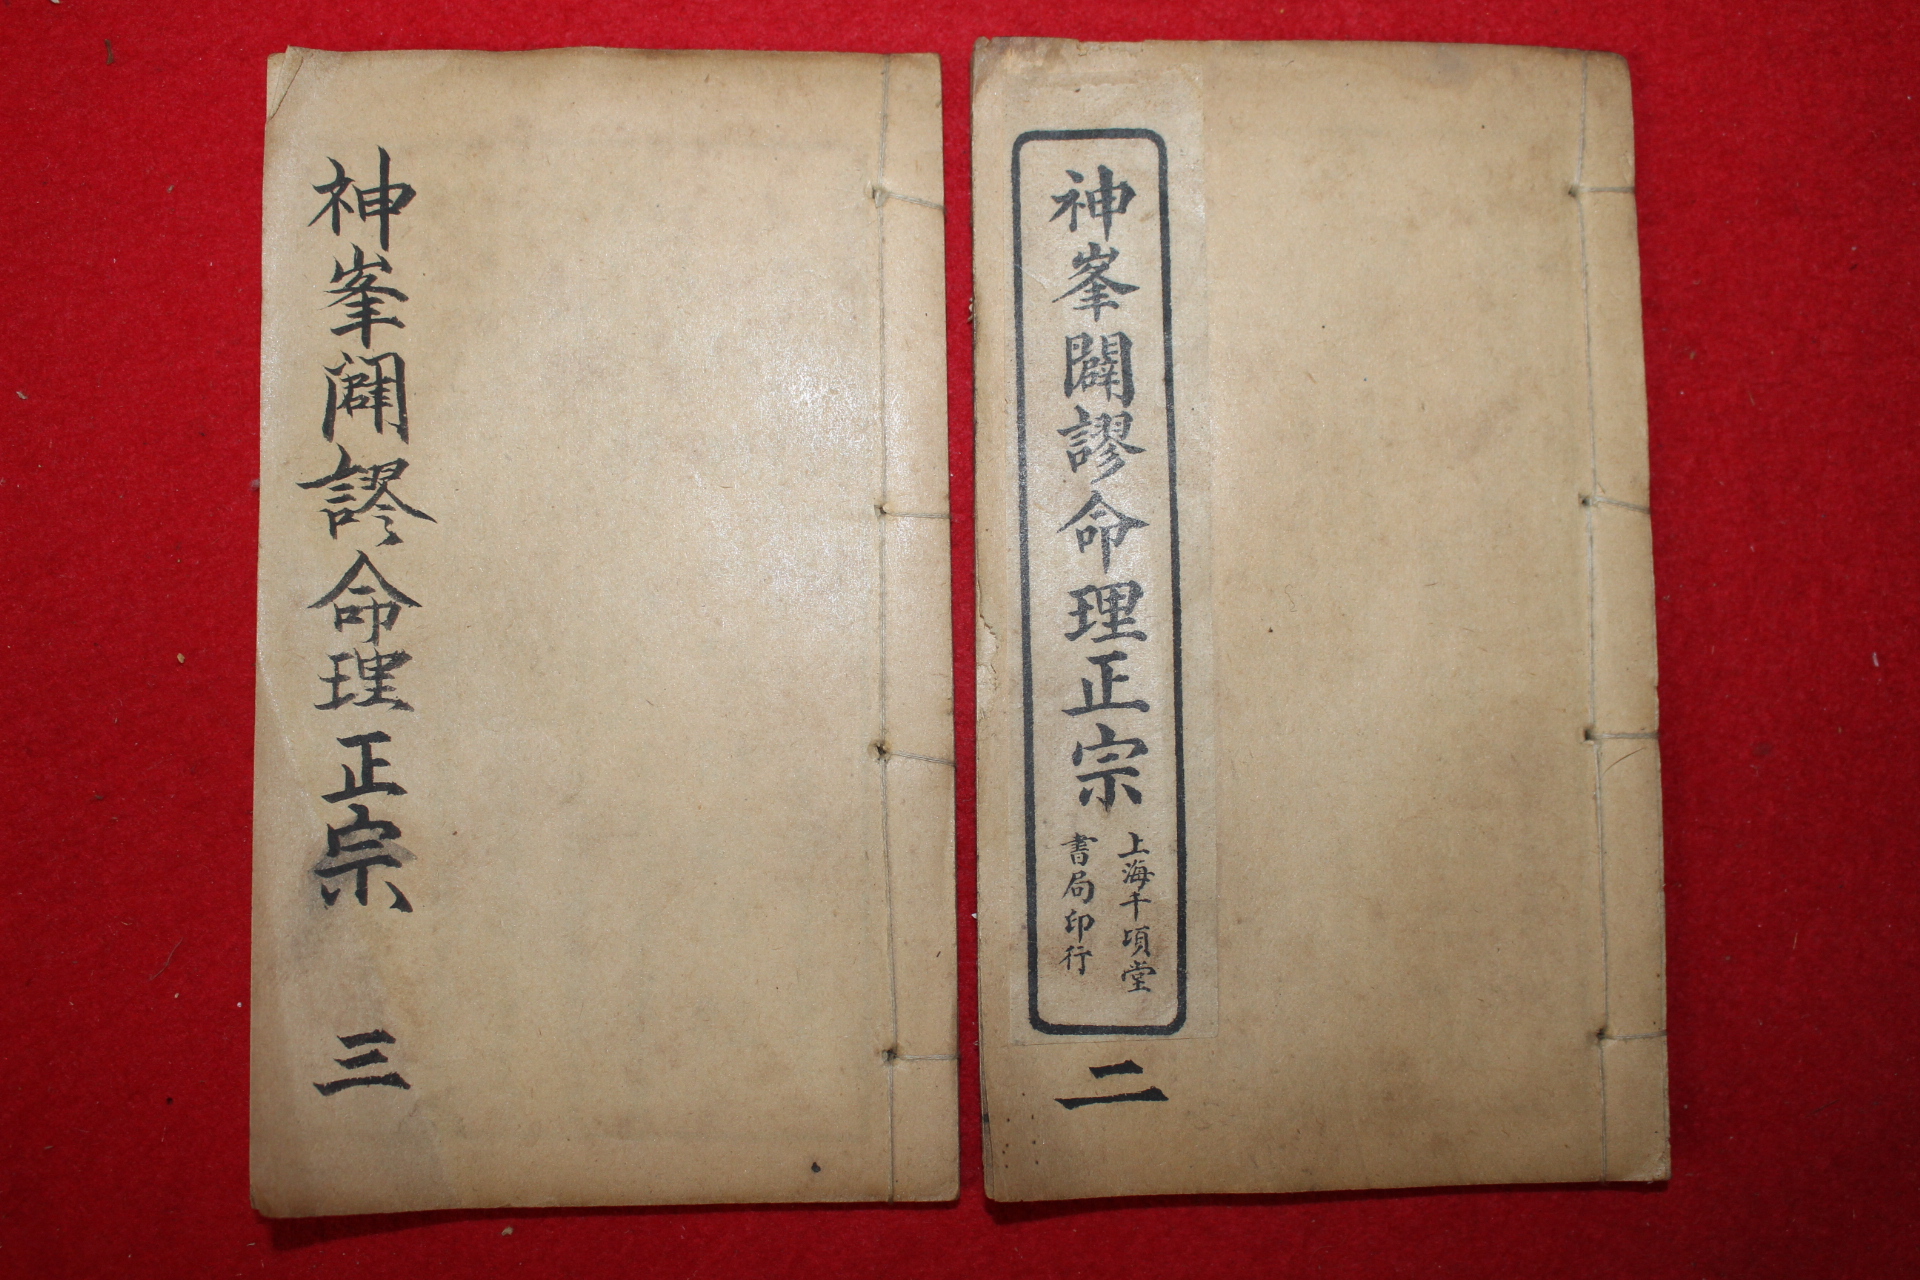 神峯闢謬命理正宗
上海千頃堂
書局印行
二
神峯闢謬命理正宗
三